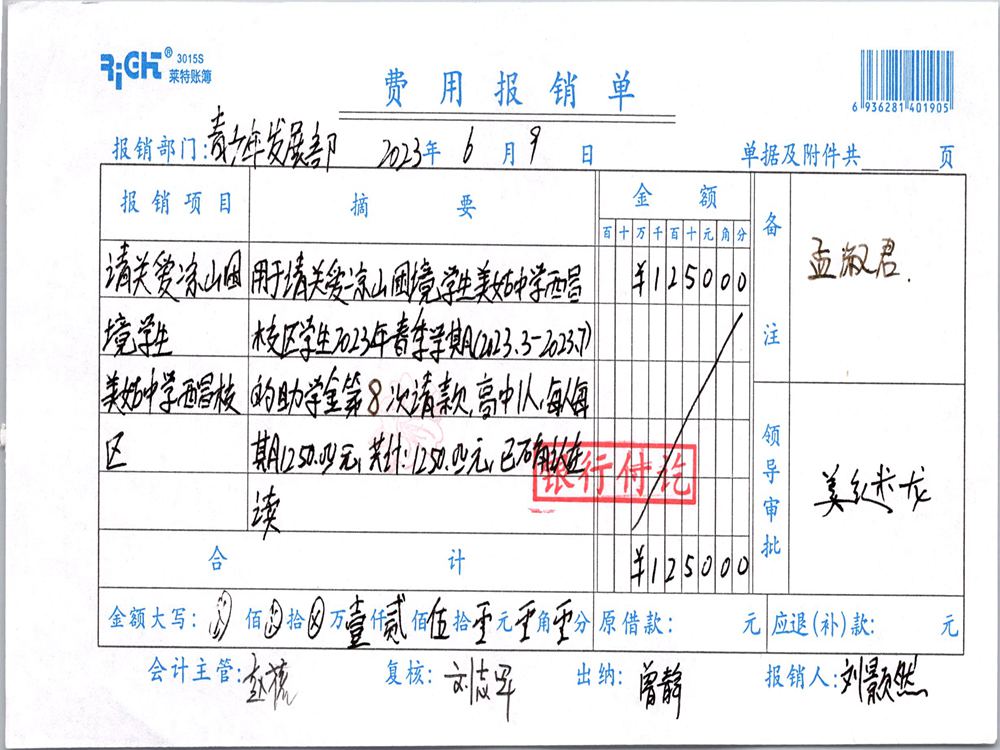 RiGHT® 3015S
莱特账簿
费用报销单
6 936281 401905
报销部门:青少年发展部 2023年 6月 9日 单据及附件共 页
报销项目 摘要 金额 备注
百十万千百十元角分
请关爱凉山困 用于请关爱凉山困境学生美姑中学西昌 ¥125000 孟淑君.
境学生 校区学生2023年春季学期(2023.3-2023.7)
美姑中学西昌校 的助学金第8次请款,高中1人,每人每
区 期1250.00元,共计:1250.00元,已确认在
读
银行付讫
领导审批
合计 ¥125000
金额大写: 佰 拾 万壹仟贰佰伍拾零元零角零分 原借款: 元 应退(补)款: 元
会计主管: 复核:刘志军 出纳:曾静 报销人:刘颢然